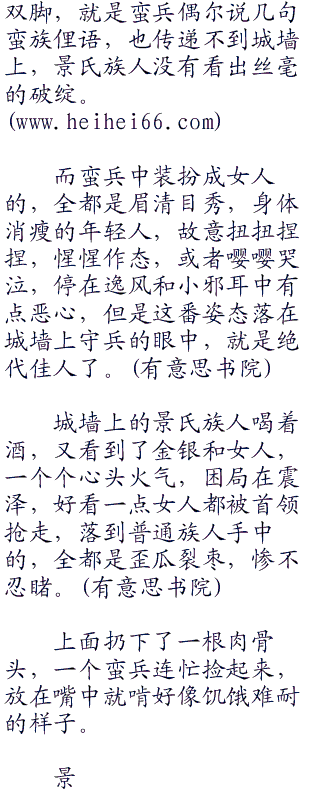 双脚，就是蛮兵偶尔说几句
蛮族俚语，也传递不到城墙
上，景氏族人没有看出丝毫
的破绽。
(www.heihei66.com)
而蛮兵中装扮成女人
的，全都是眉清目秀，身体
消瘦的年轻人，故意扭扭捏
捏，惺惺作态，或者嘤嘤哭
泣，停在逸风和小邪耳中有
点恶心，但是这番姿态落在
城墙上守兵的眼中，就是绝
代佳人了。(有意思书院)
城墙上的景氏族人喝着
酒，又看到了金银和女人，
一个个心头火气，困局在震
泽，好看一点女人都被首领
抢走，落到普通族人手中
的，全都是歪瓜裂枣，惨不
忍睹。(有意思书院)
上面扔下了一根肉骨
头，一个蛮兵连忙捡起来，
放在嘴中就啃好像饥饿难耐
的样子。
景